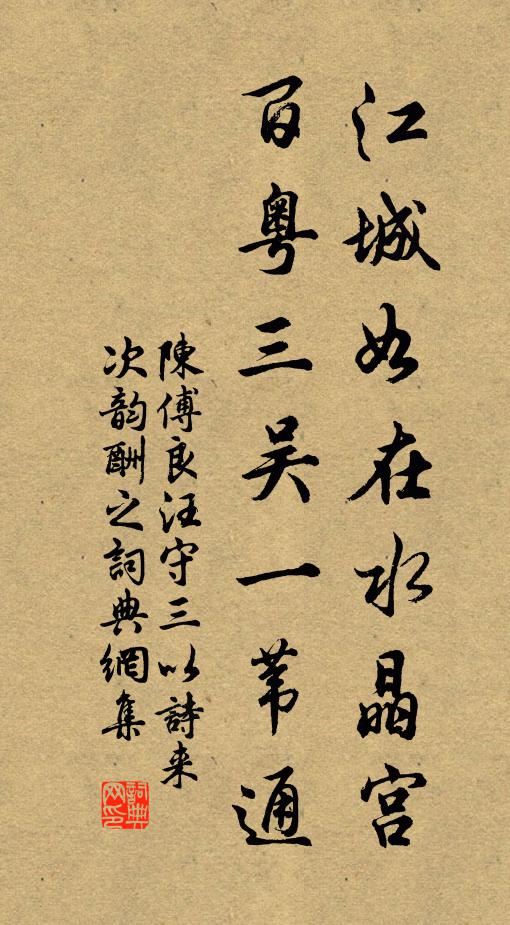 江城如在水晶宫
百粤三吴一苇通
陳傅良汪守三以詩来
次韵酬之詞典網集
詞典
网印